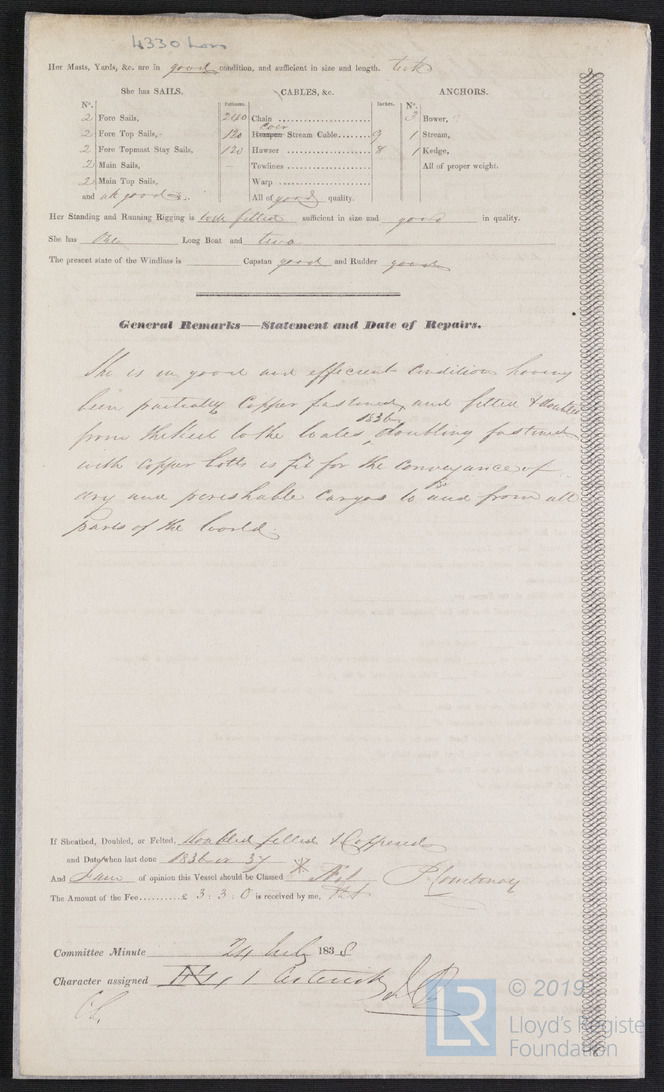 4330 Lon
Her Masts, Yards, &c. are in good condition, and sufficient in size and length.
She has SAILS.
CABLES, &c.
ANCHORS.
N°.
Fathoms.
Inches.
N°.
2 Fore Sails,
240 Chain
3 Bower,
2 Fore Top Sails,
120 Hempen Coir Stream Cable 9
1 Stream,
2 Fore Topmast Stay Sails,
120 Hawser 8
1 Kedge,
2 Main Sails,
Towlines
All of proper weight.
2 Main Top Sails,
Warp
and all good
All of good quality.
Her Standing and Running Rigging is well fitted sufficient in size and good in quality.
She has One Long Boat and two
The present state of the Windlass is Capstan good and Rudder good
General Remarks—Statement and Date of Repairs.
She is in good and efficient condition having
been partially copper fastened and felted & doubled
from the Keel to the Wales 1836, doubling fastened
with copper bolts is fit for the conveyance of
dry and perishable cargoes to and from all
parts of the World.
If Sheathed, Doubled, or Felted, doubled felted & Coppered
and Date when last done 1836 or 37
And I am of opinion this Vessel should be Classed
P. Courtenay
The Amount of the Fee £ 3 : 3 : 0 is received by me,
Committee Minute 24 July 1838
Character assigned 1 Asterisk
© 2019
LR
Lloyd's Register
Foundation